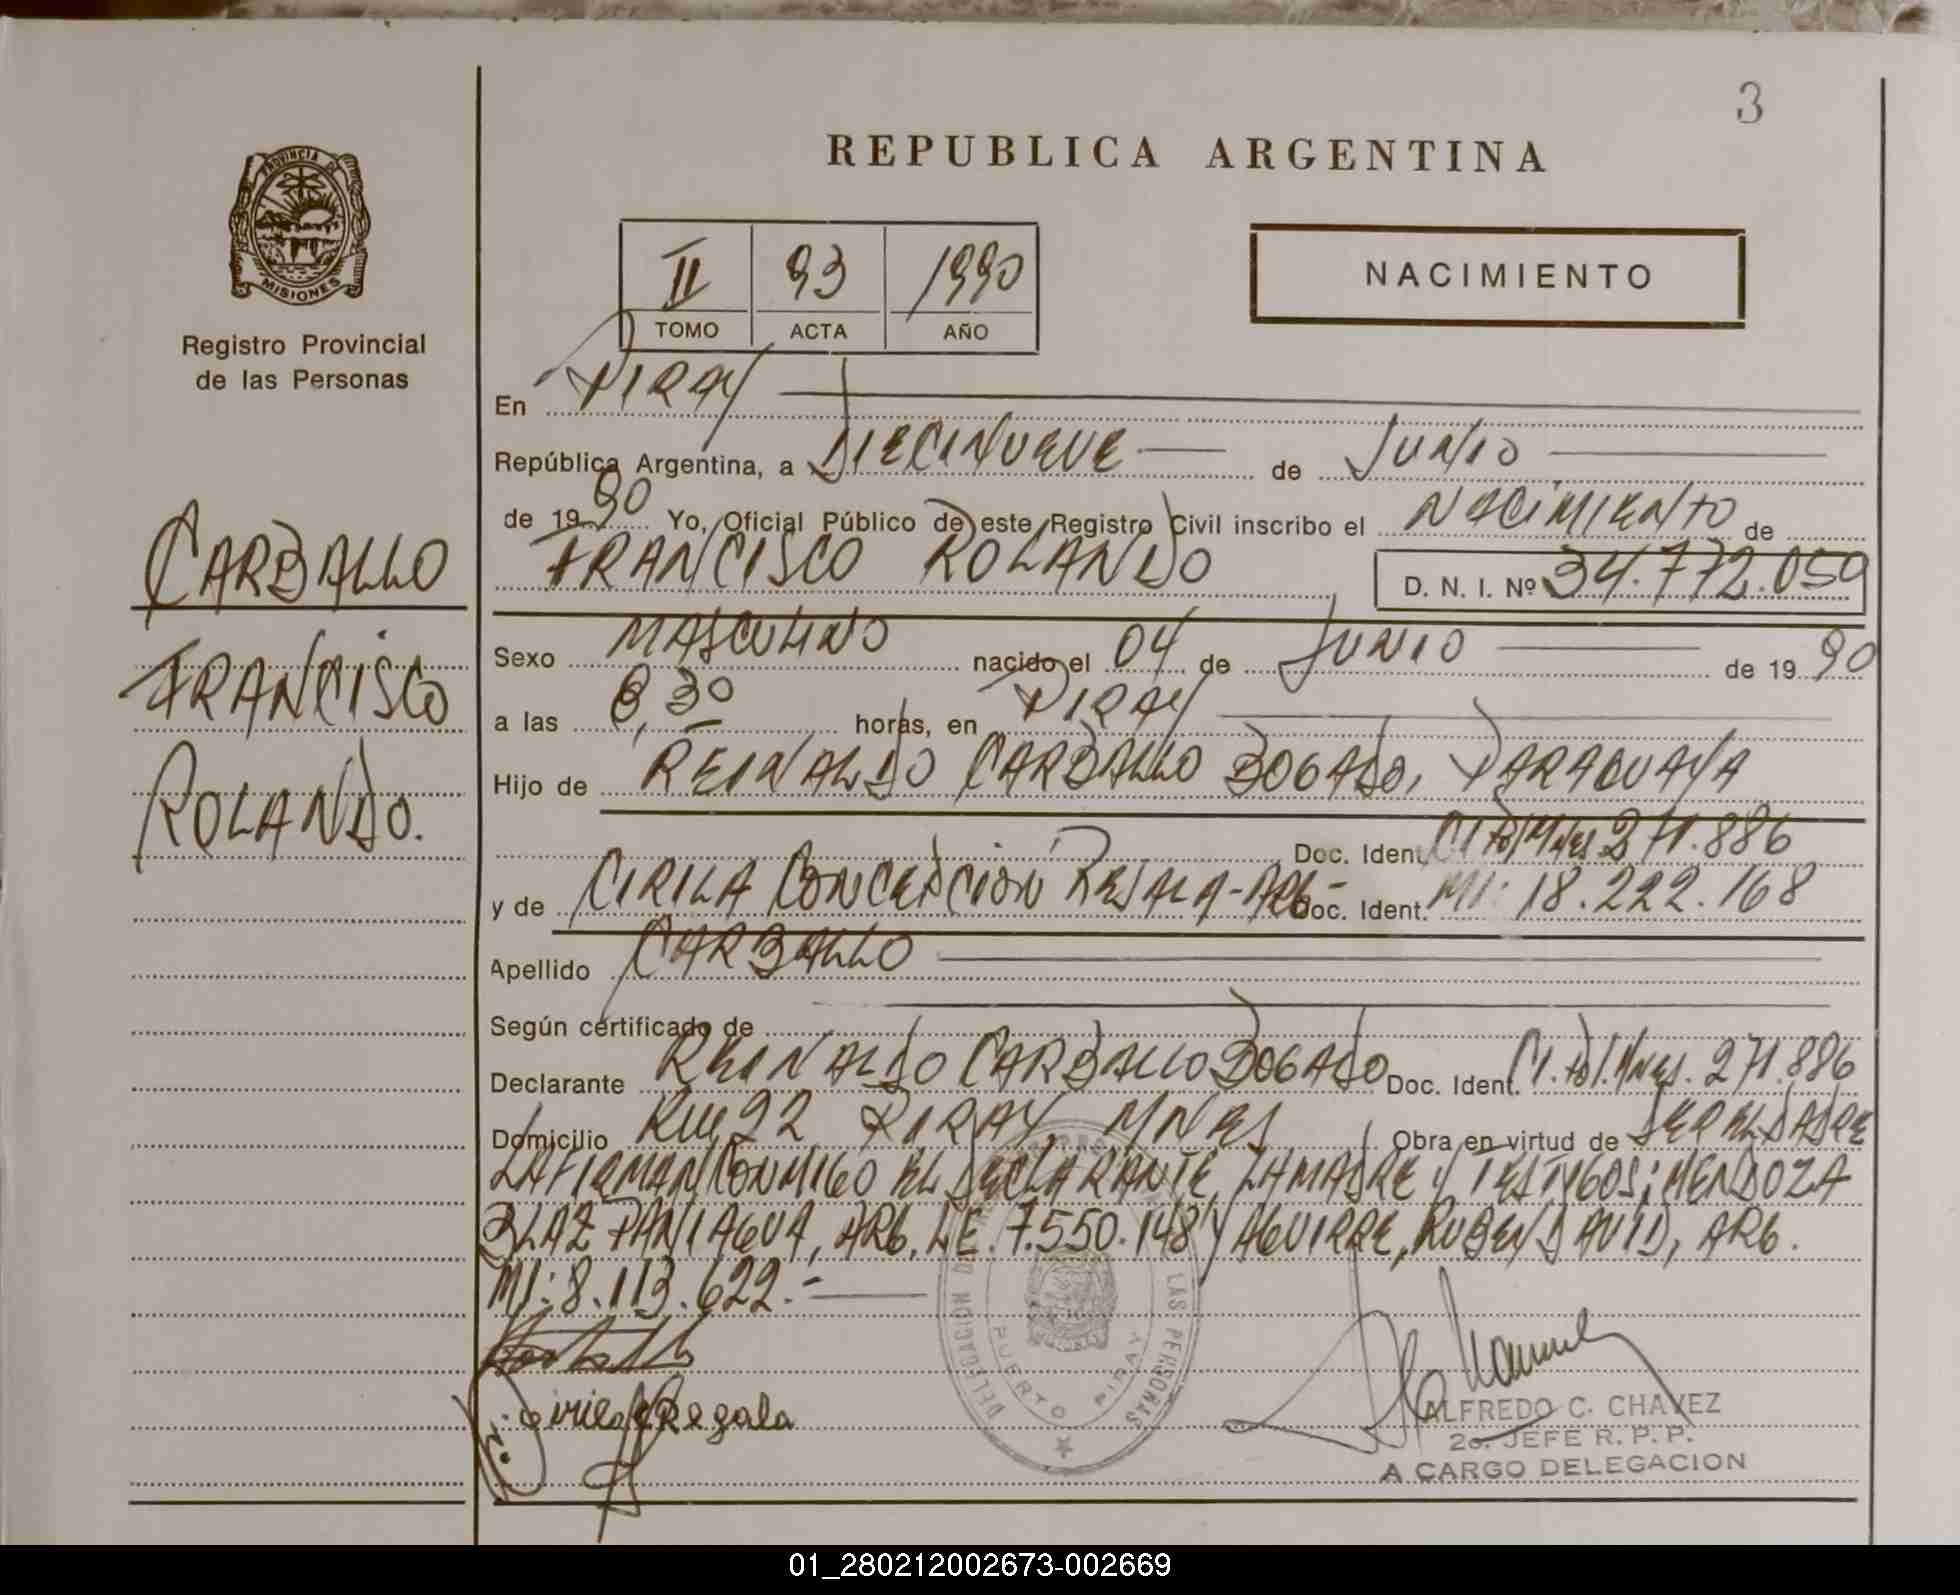 3
REPUBLICA ARGENTINA
PROVINCIA DE
MISIONES
Registro Provincial
de las Personas
II 93 1990
TOMO ACTA AÑO
NACIMIENTO
CARBALLO
FRANCISCO
ROLANDO.
En PIRAY
República Argentina, a DIECINUEVE de JUNIO
de 1990 Yo, Oficial Público de este Registro Civil inscribo el NACIMIENTO de
FRANCISCO ROLANDO D. N. I. Nº 34.772.059
Sexo MASCULINO nacido el 04 de JUNIO de 1990
a las 8,30 horas, en PIRAY
Hijo de REINALDO CARBALLO BOGADO, PARAGUAYA
Doc. Ident. CI Pol Mnes 271.886
y de CIRILA CONCEPCION REGALA-ARG- Doc. Ident. MI: 18.222.168
Apellido CARBALLO
Según certificado de
Declarante REINALDO CARBALLO BOGADO Doc. Ident. CI. Pol. Mnes. 271.886
Domicilio Km 22 PIRAY MNES Obra en virtud de SER EL PADRE
LA FIRMAN CONMIGO EL DECLARANTE, LA MADRE Y TESTIGOS: MENDOZA
BLAZ PANIAGUA, ARG. LE. 7.550.148 Y AGUIRRE, RUBEN DAVID, ARG.
MI: 8.113.622.-
Cirila C Regala
DELEGACION LAS PERSONAS
PUERTO PIRAY
ALFREDO C. CHAVEZ
2o. JEFE R. P. P.
A CARGO DELEGACION
01_280212002673-002669